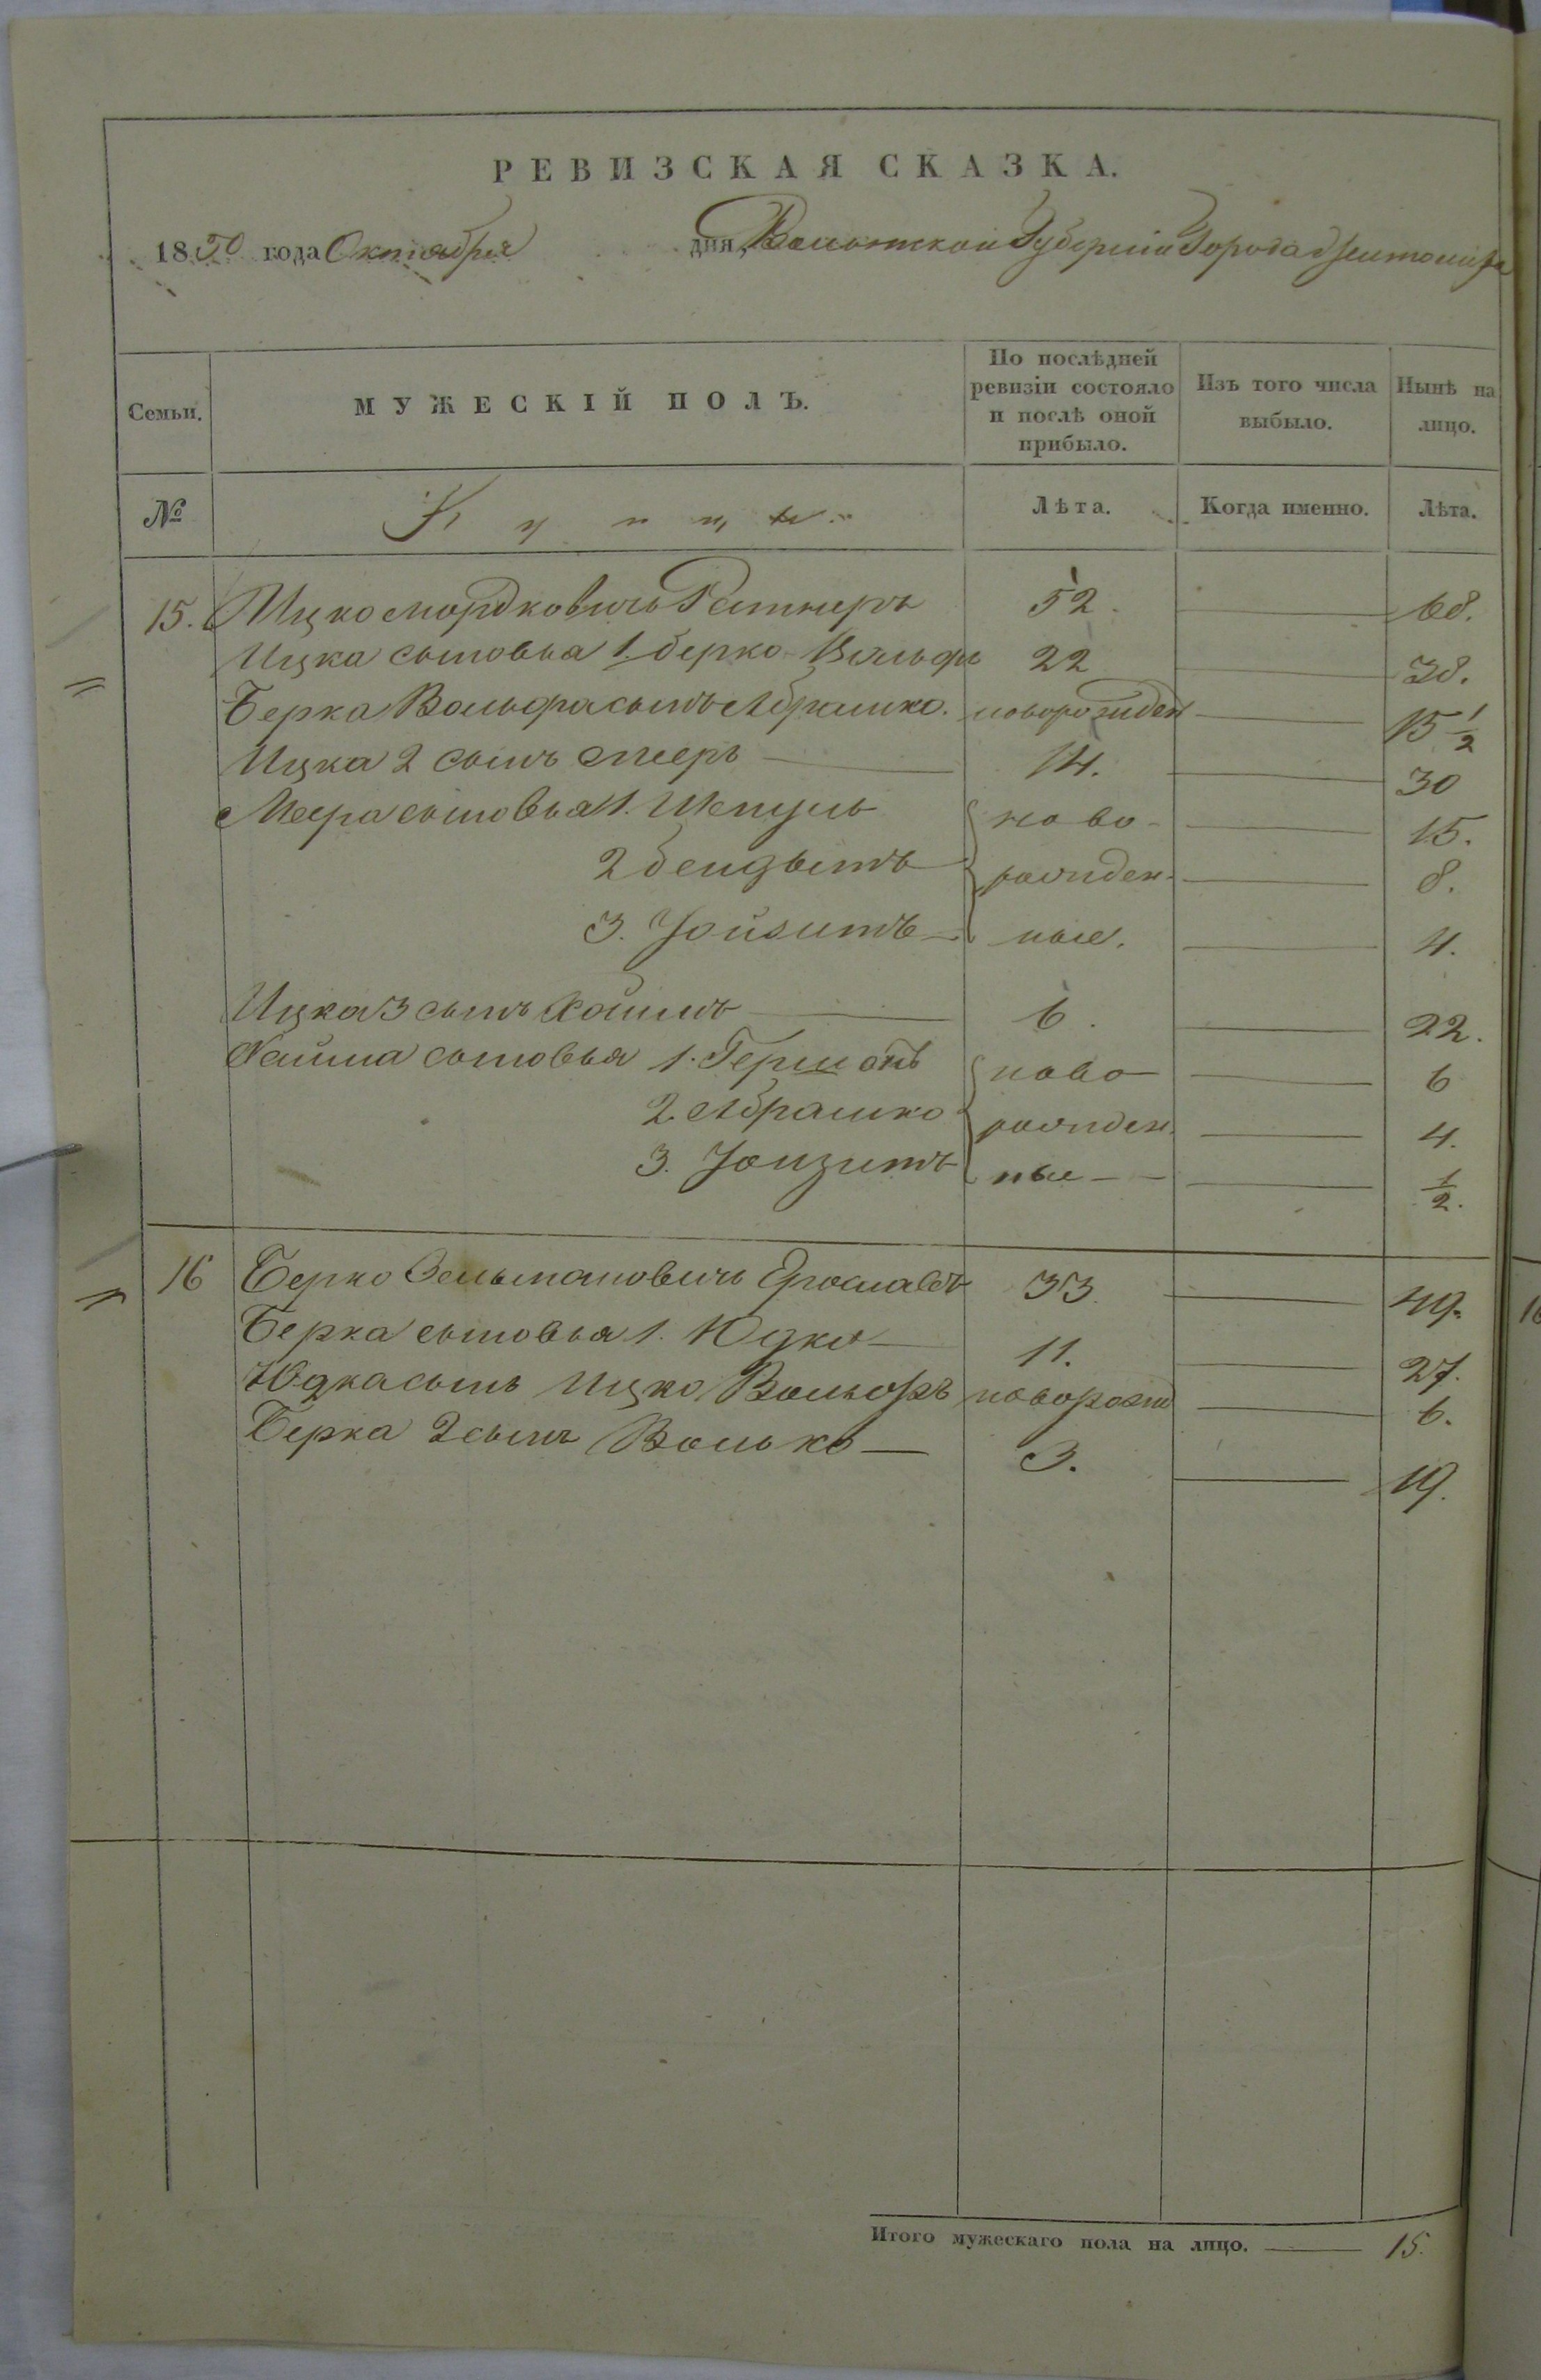 РЕВИЗСКАЯ СКАЗКА.
1850 года Октября дня, Волынской Губерніи Города Житомира
Семьи.
МУЖЕСКІЙ ПОЛЪ.
По послѣдней
ревизіи состояло
и послѣ оной
прибыло.
Изъ того числа
выбыло.
Нынѣ на
лицо.
№ Купцы. Лѣта. Когда именно. Лѣта.
15. Ицко Мордковичъ Ратнеръ 52. 68.
Ицка сыновья 1. Берко-Вольфъ 22 38.
Берка Вольфа сынъ Абрашко. новорожден 15 1/2
Ицка 2 сынъ Мееръ 14. 30
Меера сыновья 1. ново- 15.
2 рожден- 8.
3. ные. 4.
Ицка 3 сынъ Хаимъ 6. 22.
Хаима сыновья 1. Гершонъ ново 6
2. Абрашко рожден. 4.
3. ные 1/2.
16 Берко Зельмановичъ 33. 49.
Берка сыновья 1. Юдко 11. 27.
Юдка сынъ Ицко Вольфъ новорожд 6.
Берка 2 сынъ Волько 3. 19.
Итого мужескаго пола на лицо. 15.